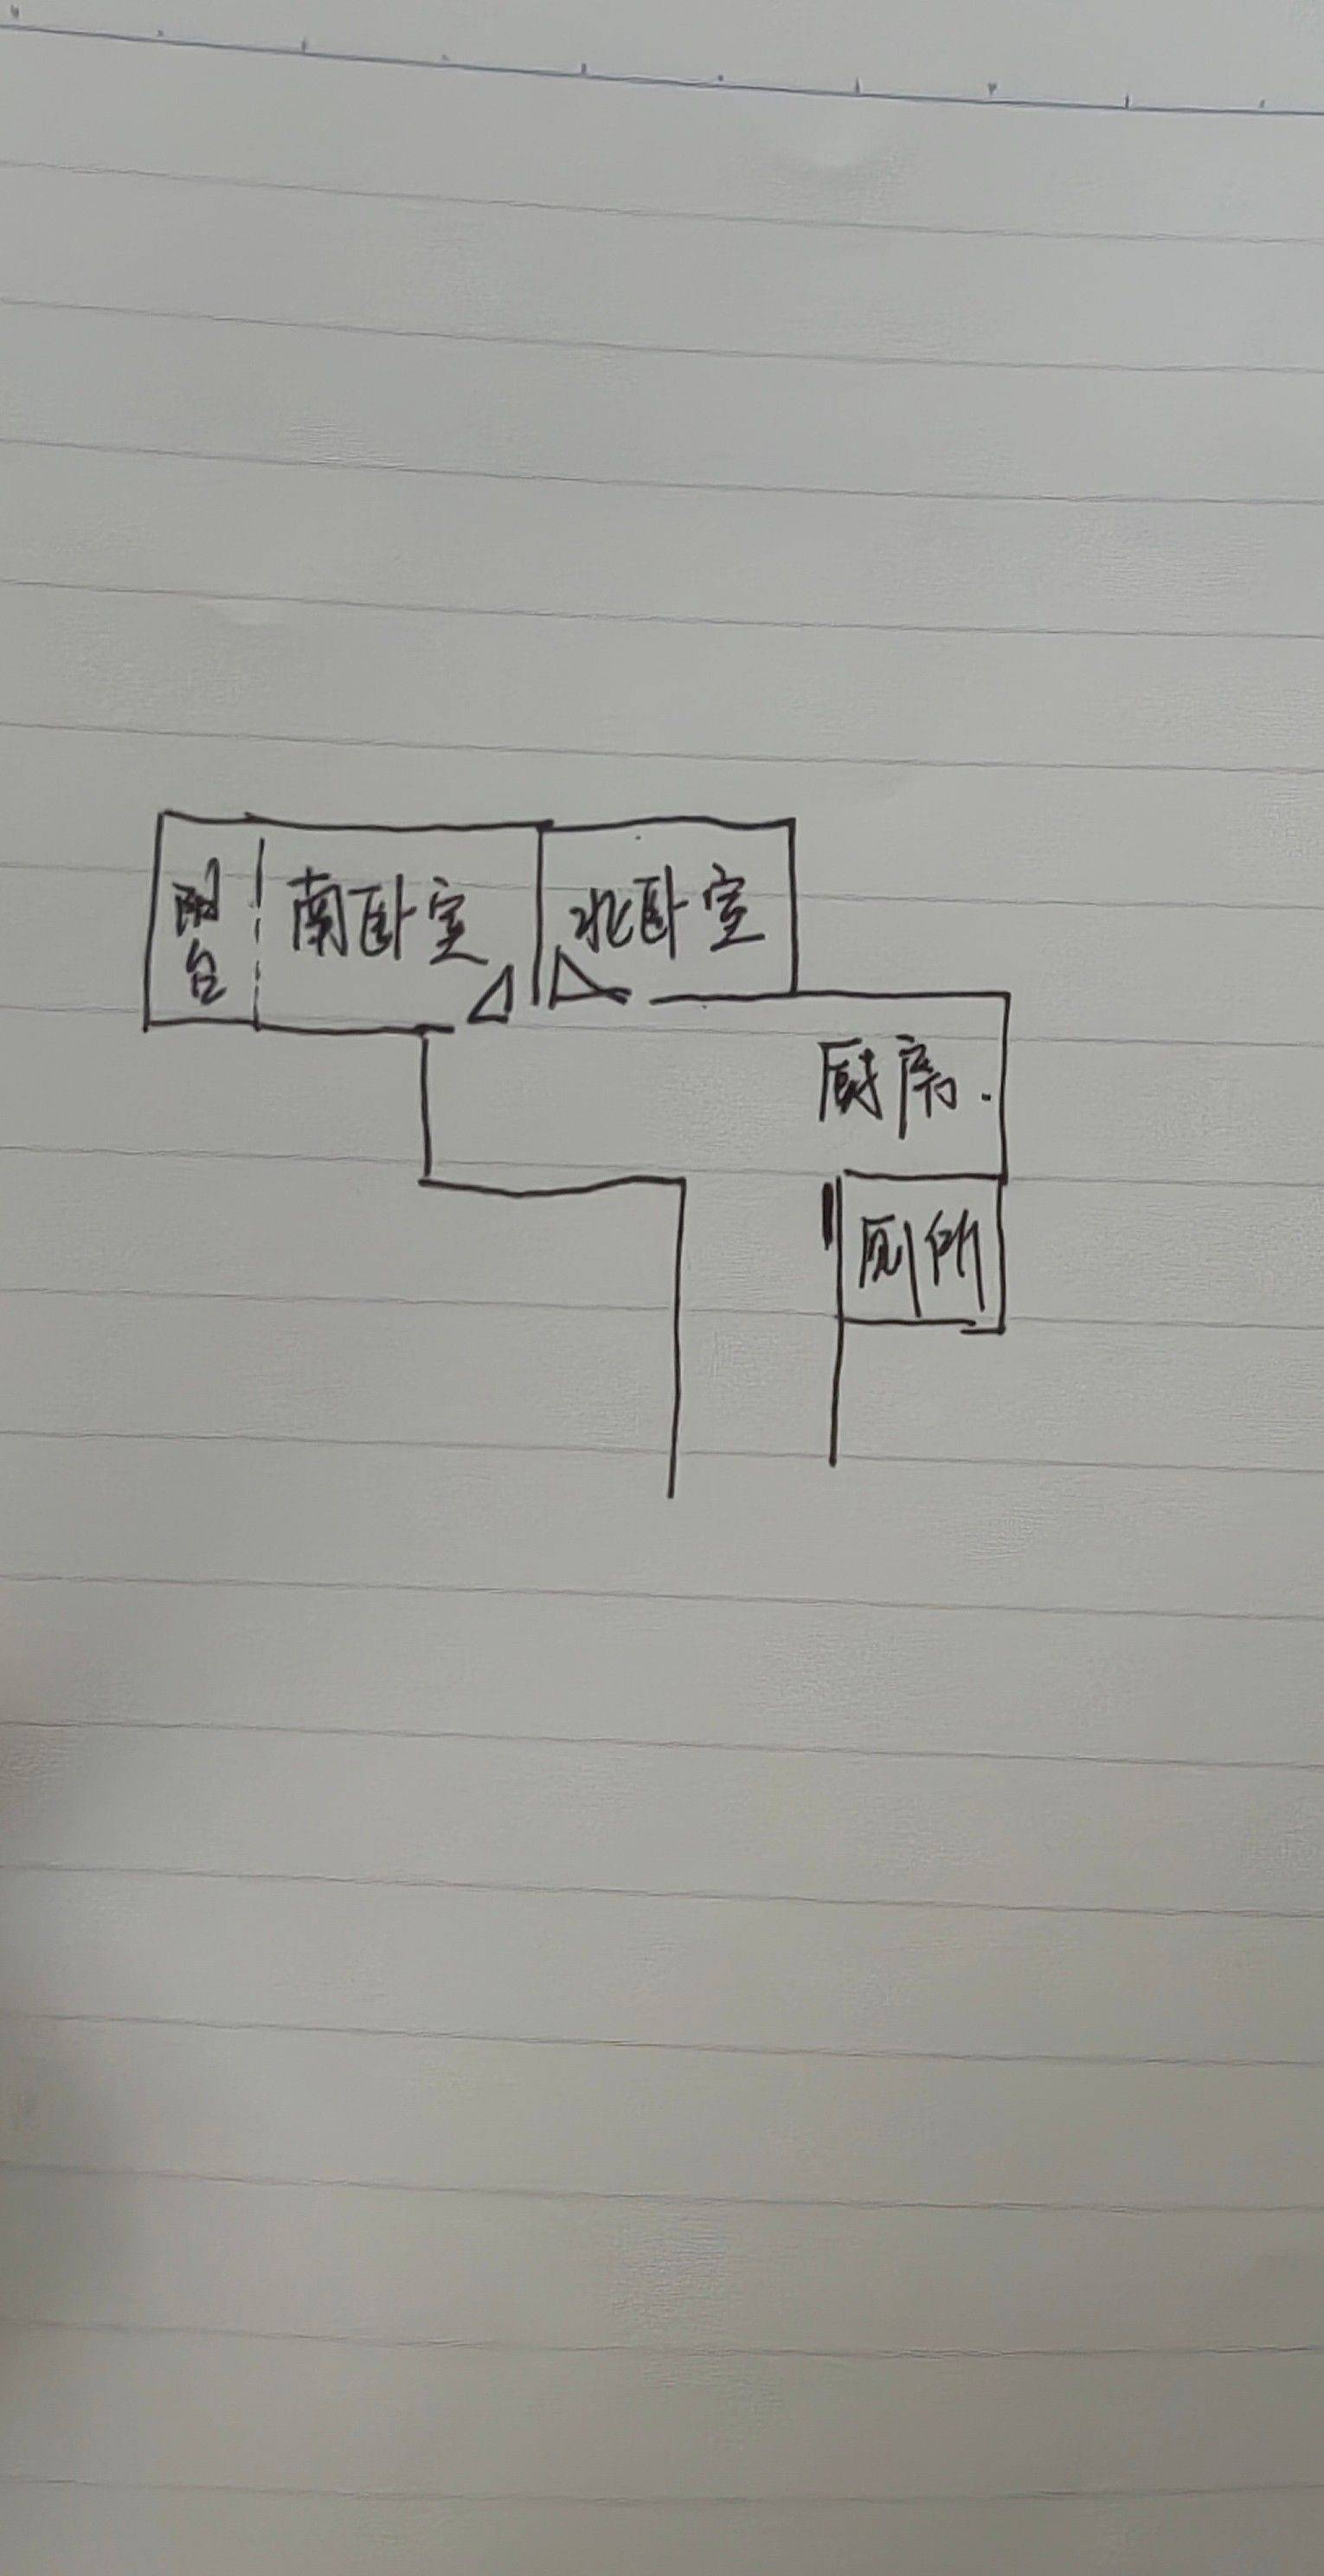 阳台
南卧室
北卧室
厨房.
厕所